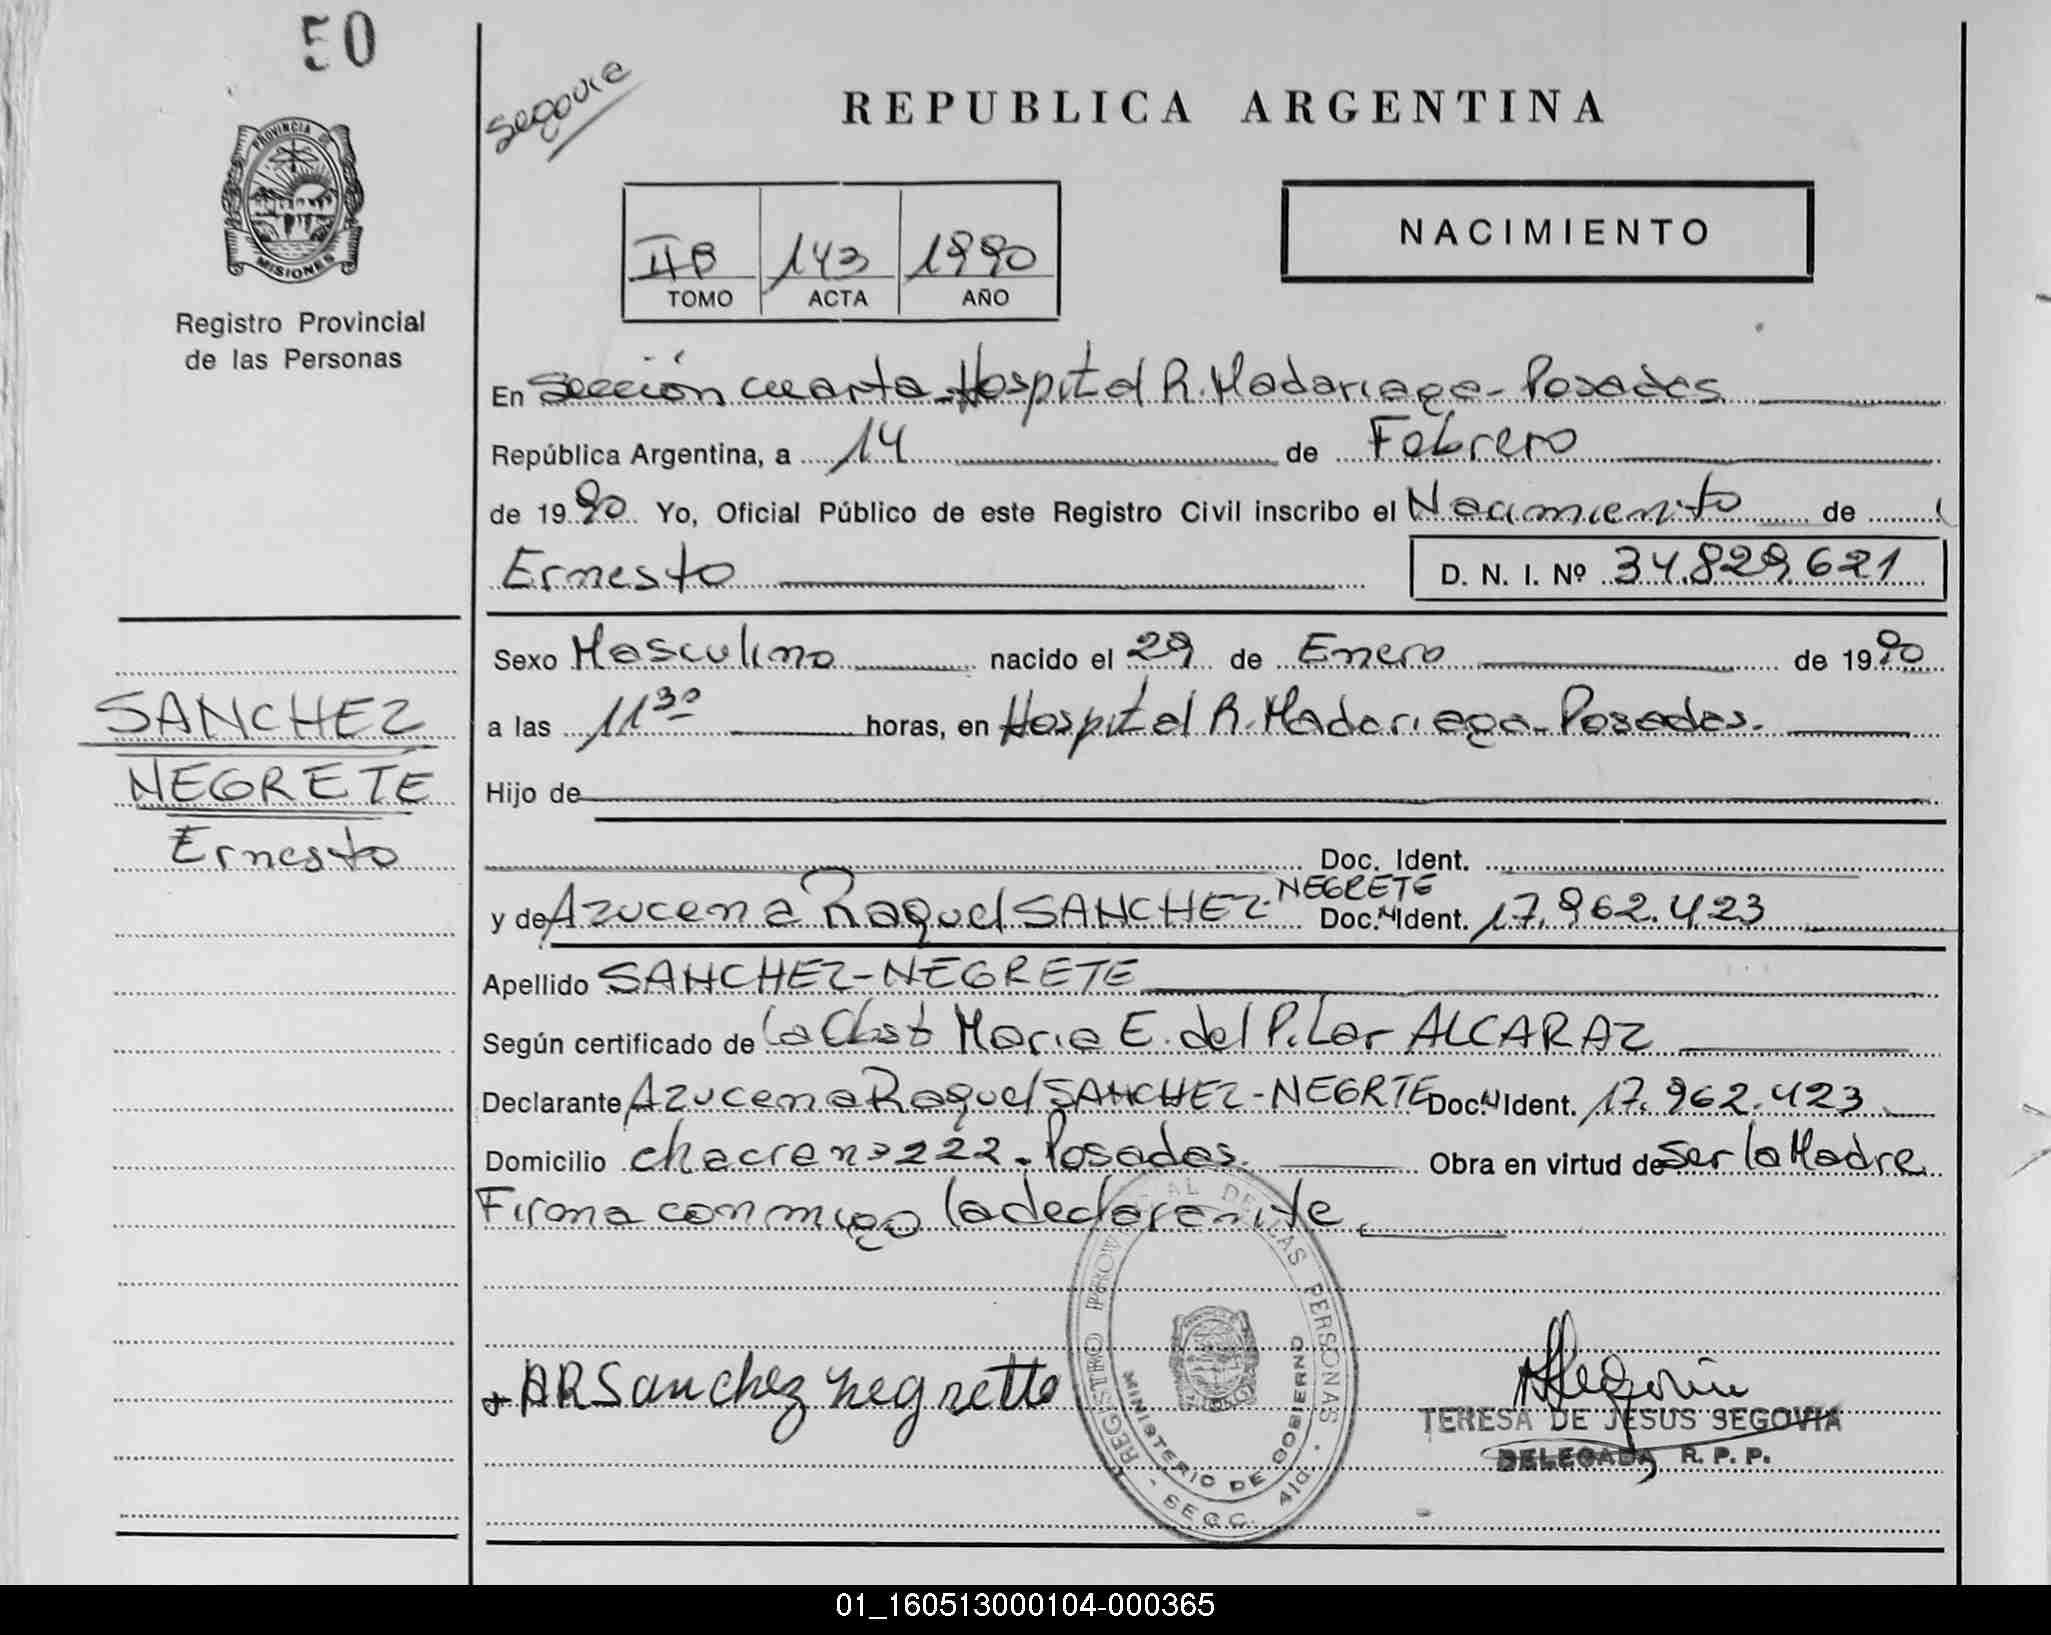 50
Segovia
REPUBLICA ARGENTINA
PROVINCIA DE
MISIONES
Registro Provincial
de las Personas
NACIMIENTO
IIB 143 1990
TOMO ACTA AÑO
En Sección cuarta-Hospital R. Madariaga-Posadas
República Argentina, a 14 de Febrero
de 1990 Yo, Oficial Público de este Registro Civil inscribo el Nacimiento de
Ernesto D. N. I. Nº 34.829.621
Sexo Masculino nacido el 29 de Enero de 1990
a las 11 30 horas, en Hospital R. Madariaga-Posadas.
Hijo de
Doc. Ident.
y de Azucena Raquel SANCHEZ-NEGRETE Doc. Ident. 17.962.423
Apellido SANCHEZ-NEGRETE
Según certificado de la Obst María E. del Pilar ALCARAZ
Declarante Azucena Raquel SANCHEZ-NEGRTE Doc. Ident. 17.962.423
Domicilio chacra nº 222-Posadas. Obra en virtud de Ser la Madre
Firma conmigo la declarante.
SANCHEZ
NEGRETE
Ernesto
REGISTRO PROVINCIAL DE LAS PERSONAS
MINISTERIO DE GOBIERNO
SECC. 4ta
ARSanchez negrette
TERESA DE JESUS SEGOVIA
DELEGADA R. P. P.
01_160513000104-000365